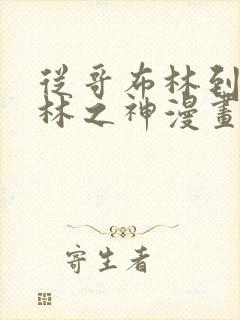 從哥布林到
林之神漫畫
寄生者